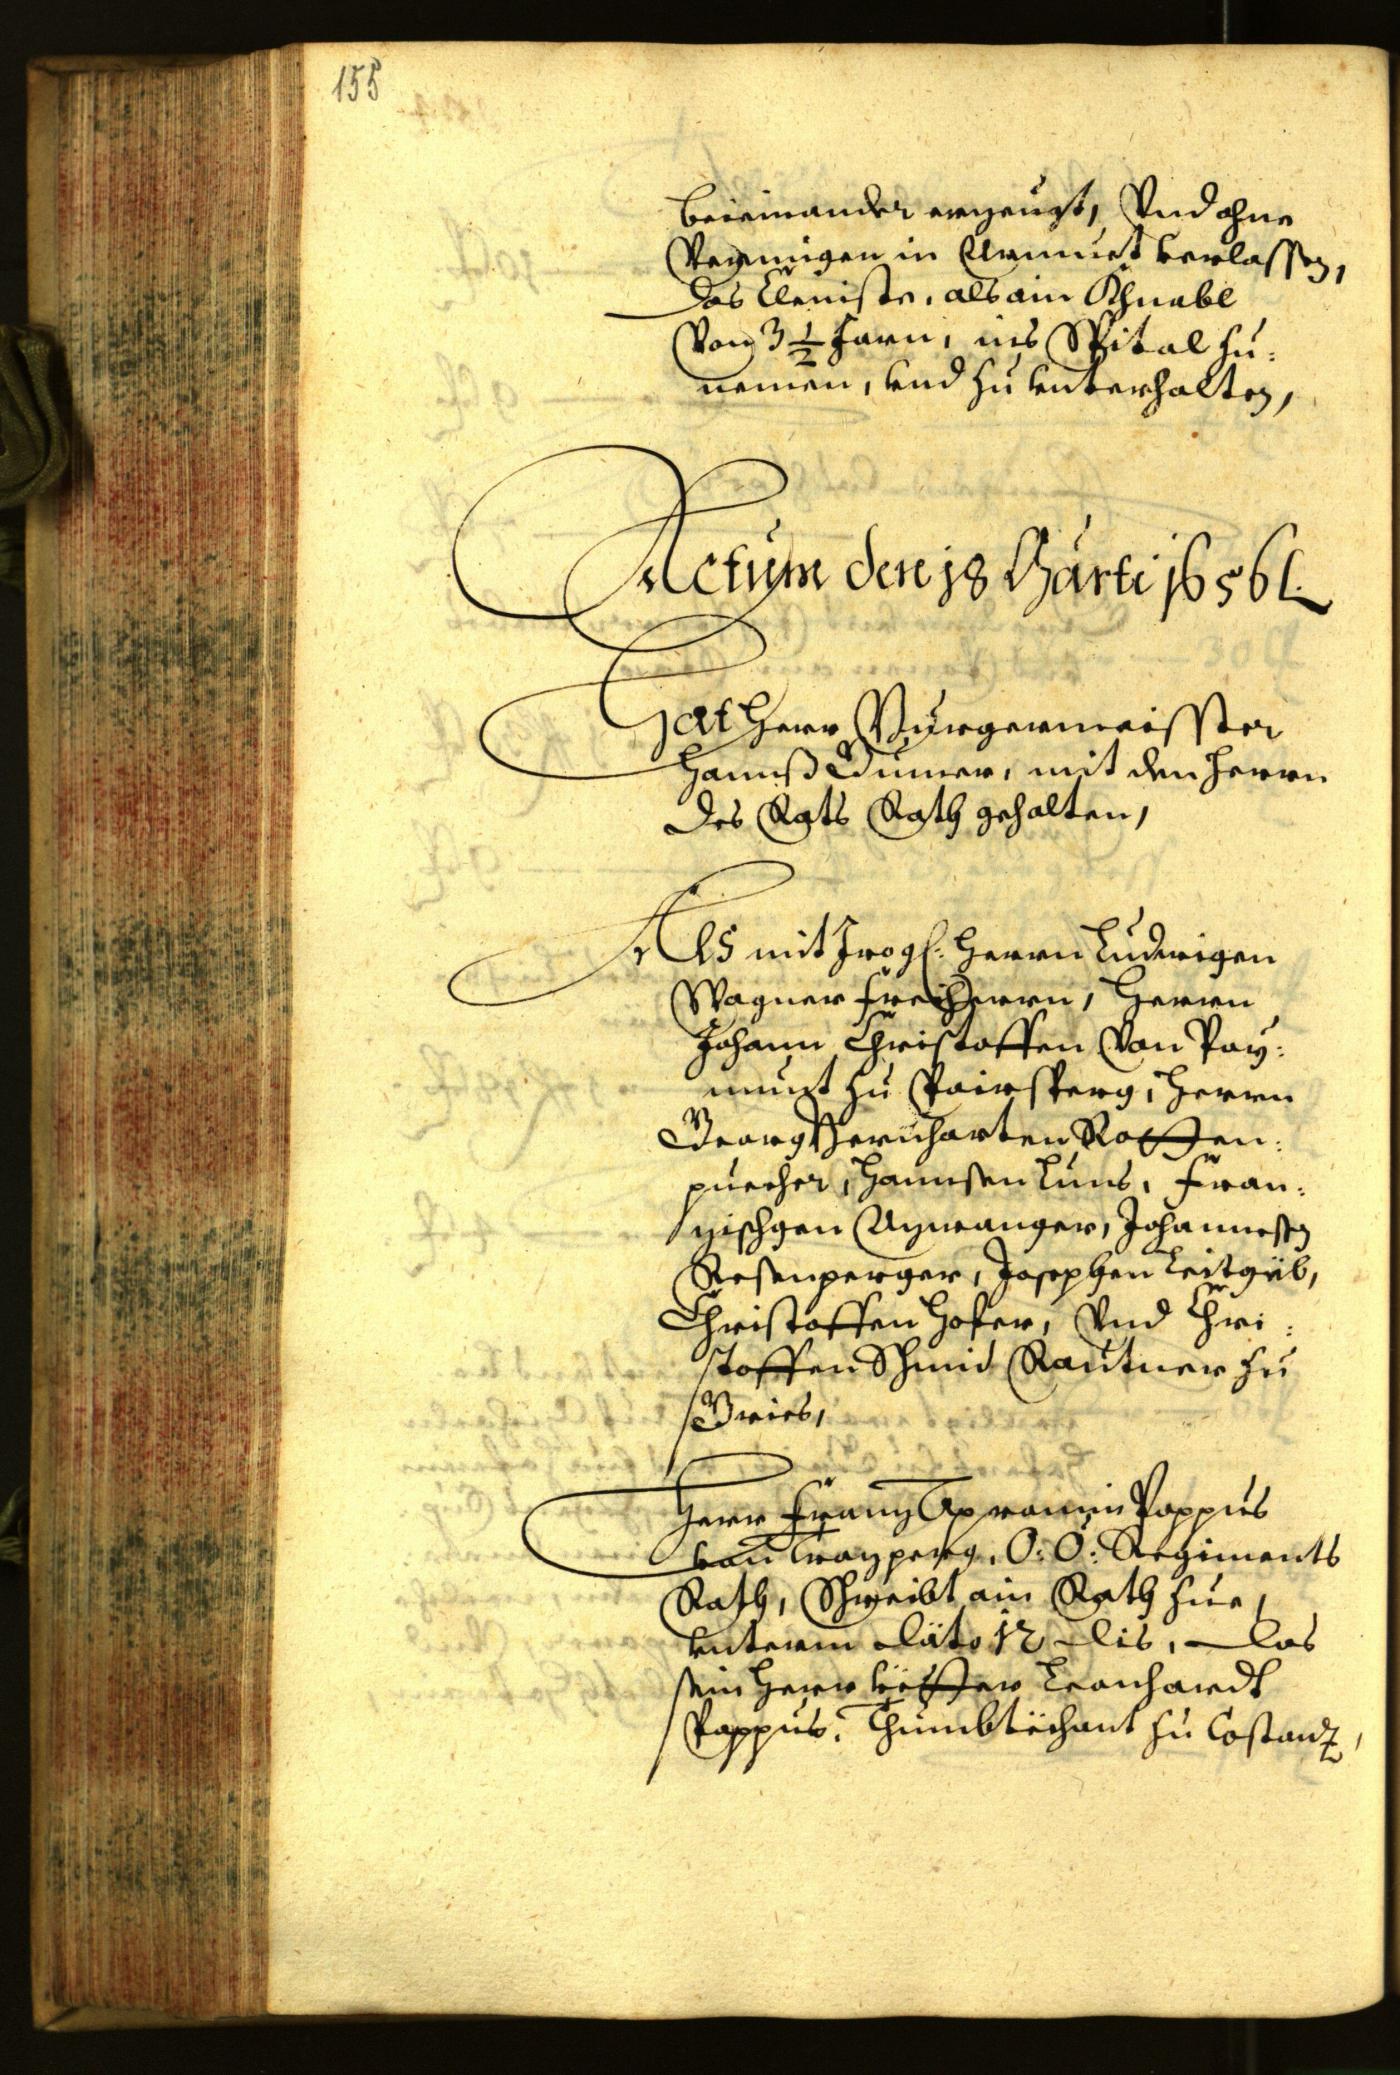 155
beieinander erzeugt, Vnd ohne
Vermigen in Armuet verlassen,
das Cleniste, als ain Khnabl
Von 3 1/2 Jarn, ins Spital zu:
nemen, vnd zu vnterhalten,
Actum den 18 Marti 1656
Hat Herr Burgermeisster
Hannß Gumer, mit den Herrn
des Rats Rath gehalten,
Als mit Herrn Ludwigen
Wagner Freiherrn, Herrn
Johann Christoffen Von Pay:
munt zu Pairsperg, Herrn
Georg Bernharten Rotten:
puecher, Hannsen Luns, Fran:
zischgen Azwanger, Johannesen
Rosenperger, Josephen Leitgeb,
Christoffen Hofer, Vnd Chri:
stoffen Schmid Rautner zu
Gries,
Herr Franz Apronian Pappus
von Trazperg, O: Ö: Regiments
Rath, Schreibt ain Rath zue,
vnterm dato 12 dis, das
sein Herr Vetter Leonhardt
Pappus, Thumbtechant zu Costanz,